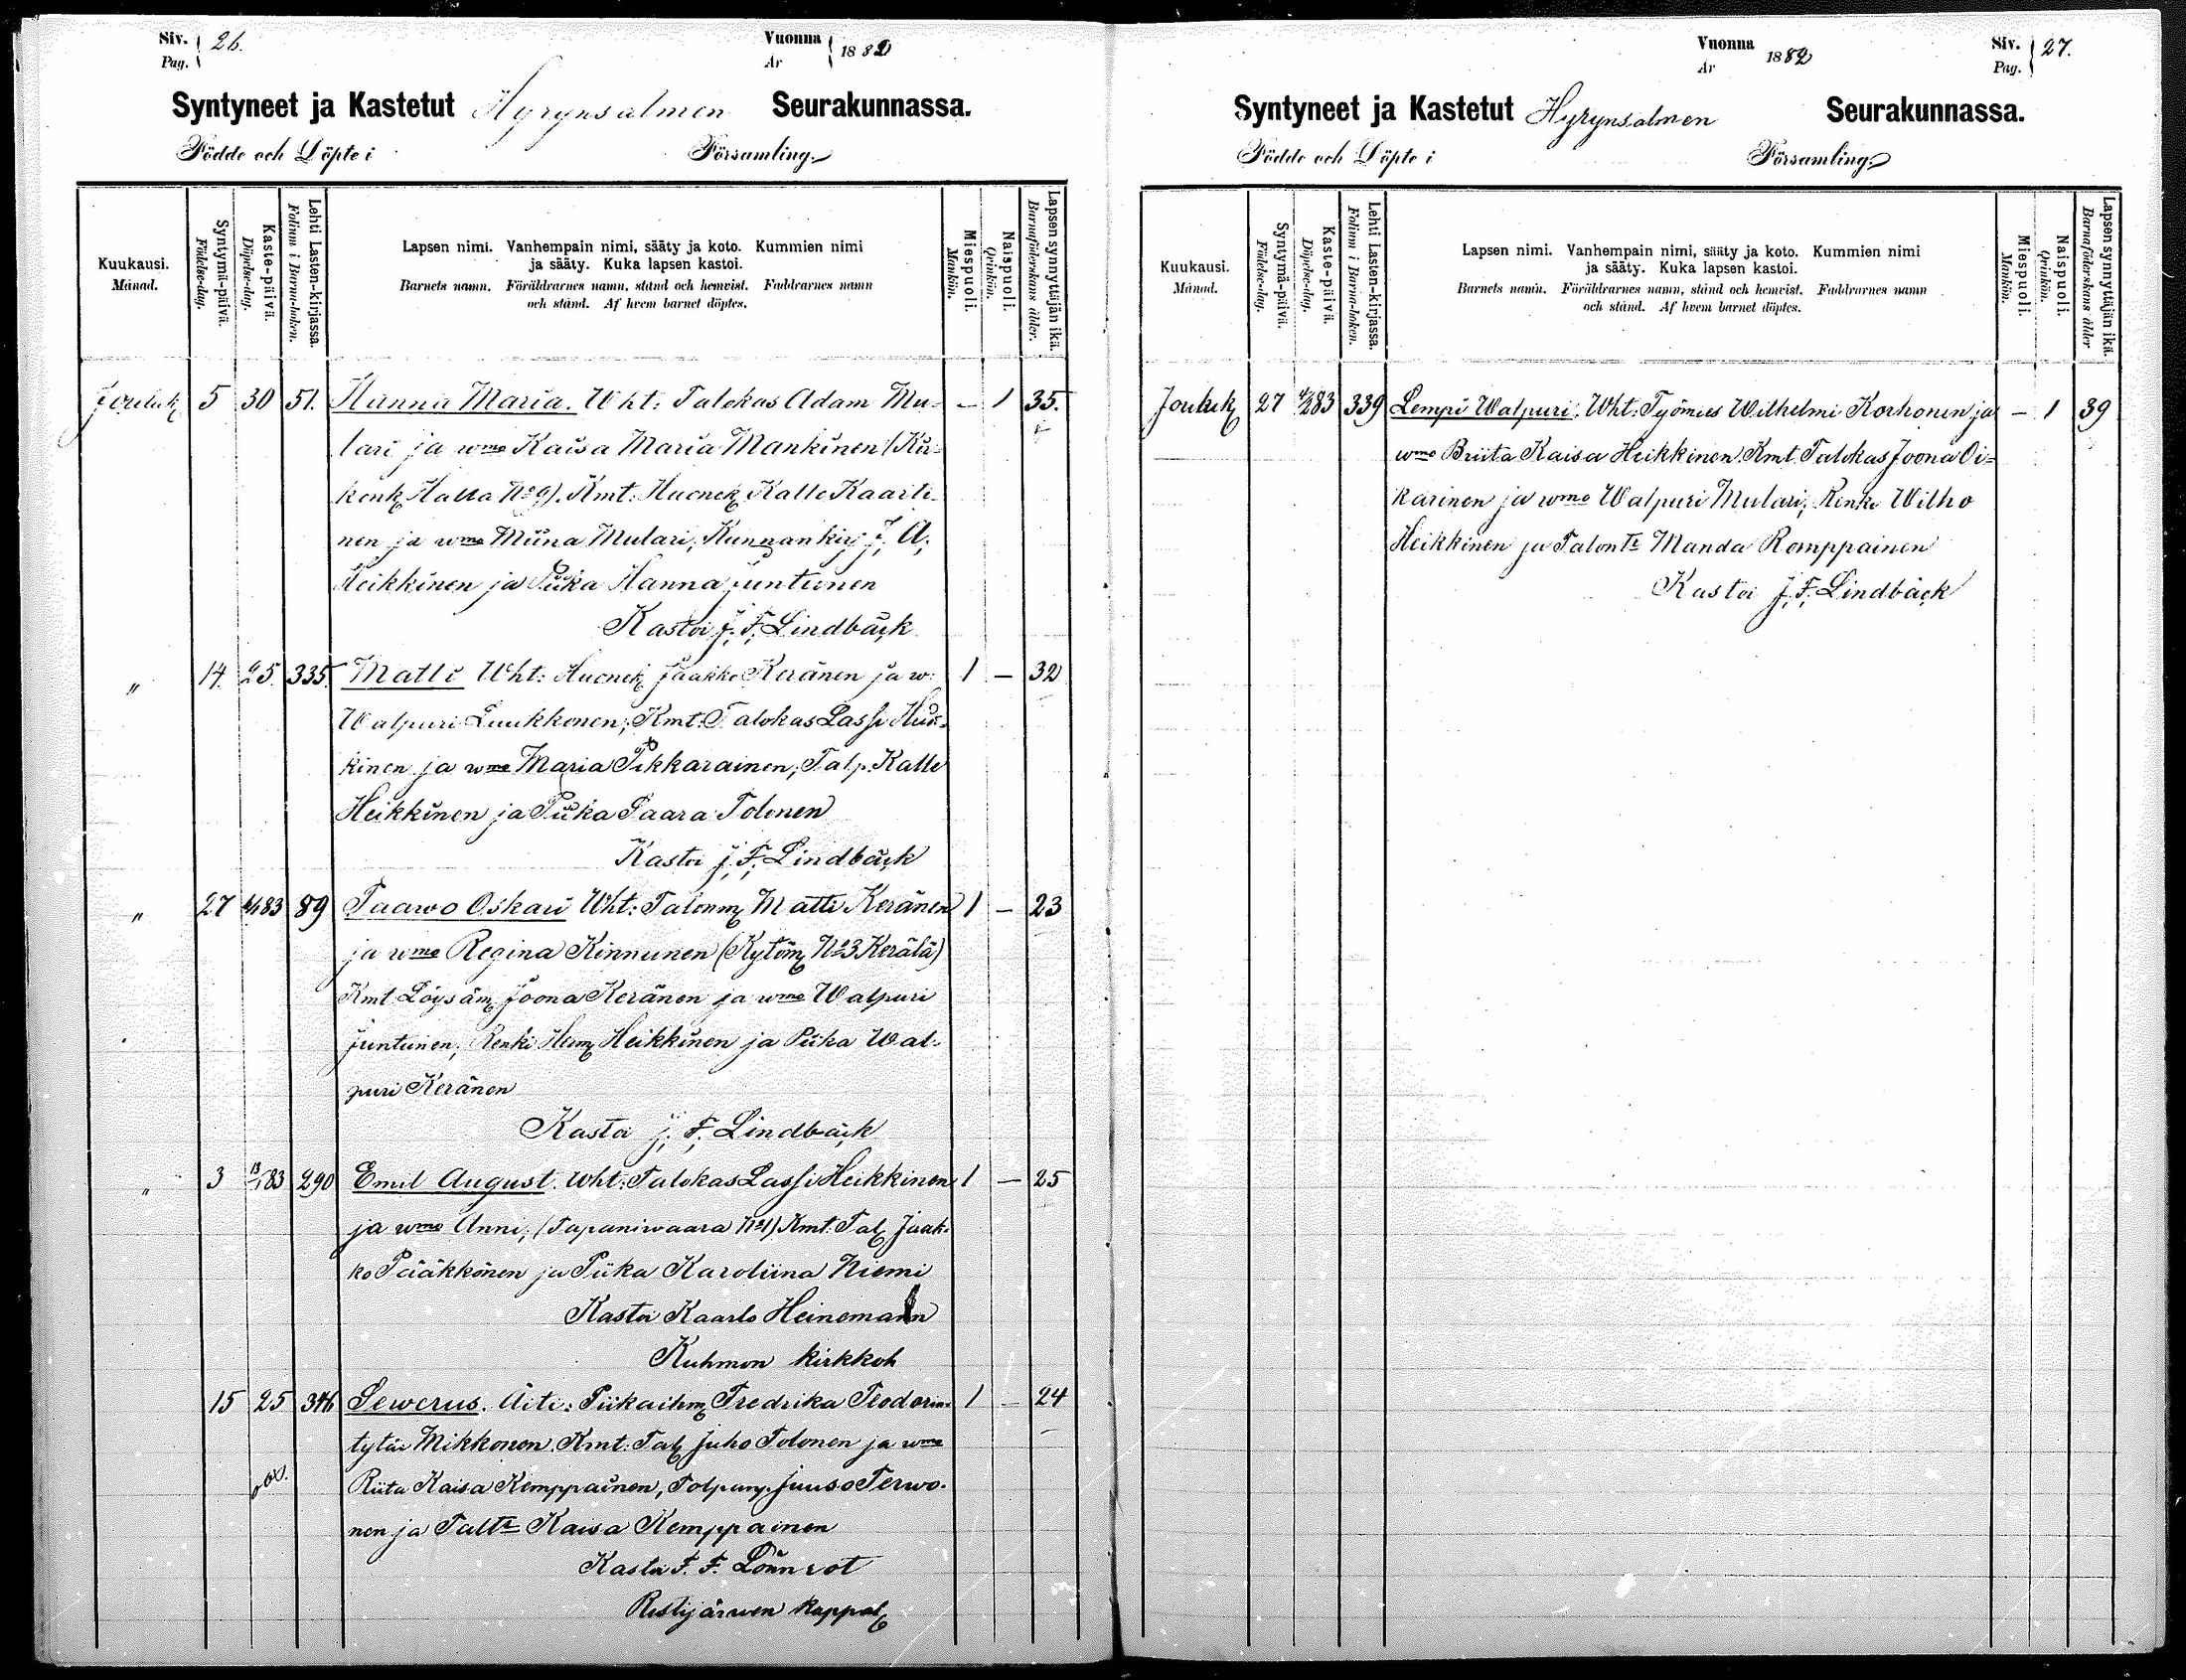 Siv. 26.
Pag.
Vuonna 1882
År
Syntyneet ja Kastetut Hyrynsalmen Seurakunnassa.
Födde och Döpte i Församling.
Kuukausi.
Månad.
Syntymä-päivä.
Födelse-dag.
Kaste-päivä.
Döpelse-dag.
Lehti Lasten-kirjassa.
Folium i Barna-boken.
Lapsen nimi. Vanhempain nimi, sääty ja koto. Kummien nimi
ja sääty. Kuka lapsen kastoi.
Barnets namn. Föräldrarnes namn, stånd och hemvist. Faddrarnes namn
och stånd. Af hvem barnet döptes.
Miespuoli.
Mankön.
Naispuoli.
Qvinkön.
Lapsen synnyttäjän ikä.
Barnaföderskans ålder.
Jouluk 5 30 51. Hanna Maria. Wht: Talokas Adam Mu- — 1 35.
lari ja wmo Kaisa Maria Mankinen (Kir-
konk Halla No 9). Kmt: Huonek Kalle Kaarti-
nen ja wmo Miina Mulari, Kunnankirj J. A.
Heikkinen ja Piika Hanna Juntunen
Kastoi J. F. Lindbäck
" 14. 25. 335. Matti Wht: Huonek Jaakko Keränen ja w: 1 — 32
Walpuri Luukkonen; Kmt: Talokas Lassi Heik-
kinen ja wmo Maria Pikkarainen; Talp. Kalle
Heikkinen ja Piika Saara Tolonen
Kastoi J. F. Lindbäck
" 27 83 89 Paawo Oskari Wht: Talonm Matti Keränen 1 — 23
ja wmo Regina Kinnunen (Kytöm No 3 Kerälä)
Kmt Löysäm Joona Keränen ja wmo Walpuri
Juntunen, Renki Herm Heikkinen ja Piika Wal-
puri Keränen
Kastoi J. F. Lindbäck
" 3 13/1 83 290 Emil August. Wht: Talokas Lassi Heikkinen 1 — 25
ja wmo Anni; (Tapaniwaara No 1) Kmt: Tal Jaak-
ko Pääkkönen ja Piika Karoliina Niemi
Kastoi Kaarlo Heinemann
Kuhmon kirkkoh
15 25 346 Sewerus. Äiti: Piikaihm Fredrika Teodorin- 1 — 24
tytär Mikkonen. Kmt: Tal Juho Tolonen ja wmo
Riita Kaisa Kemppainen, Talpuny. Juuso Terwo-
nen ja Taltr Kaisa Kemppainen
Kastoi F. F. Lönnrot
Ristijärwen kappal
Vuonna 1882
År
Siv. 27.
Pag.
Syntyneet ja Kastetut Hyrynsalmen Seurakunnassa.
Födde och Döpte i Församling.
Kuukausi.
Månad.
Syntymä-päivä.
Födelse-dag.
Kaste-päivä.
Döpelse-dag.
Lehti Lasten-kirjassa.
Folium i Barna-boken.
Lapsen nimi. Vanhempain nimi, sääty ja koto. Kummien nimi
ja sääty. Kuka lapsen kastoi.
Barnets namn. Föräldrarnes namn, stånd och hemvist. Faddrarnes namn
och stånd. Af hvem barnet döptes.
Miespuoli.
Mankön.
Naispuoli.
Qvinkön.
Lapsen synnyttäjän ikä.
Barnaföderskans ålder
Jouluk 27 83 339 Lempi Walpuri. Wht: Työmies Wilhelmi Korhonen ja — 1 39
wmo Briita Kaisa Heikkinen. Kmt. Talokas Joona Oi-
karinen ja wmo Walpuri Mulari; Renki Wilho
Heikkinen ja Talontr Manda Romppainen
Kastoi J. F. Lindbäck